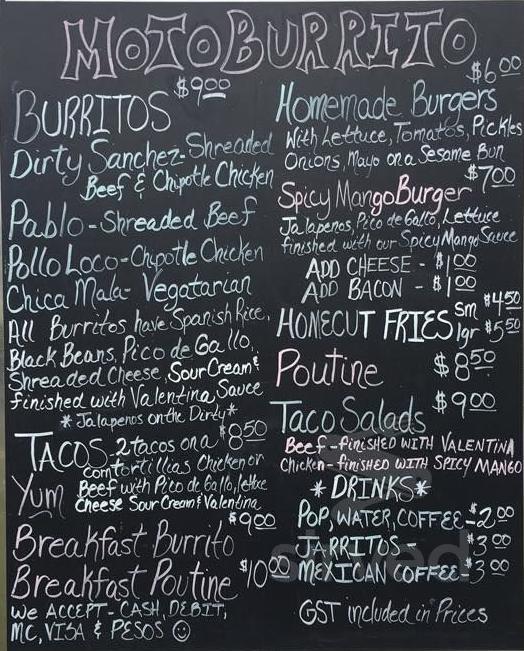 MOTOBURRITO
BURRITOS $9.00
Dirty Sanchez-Shreaded
Beef & Chipotle Chicken
Pablo-Shreaded Beef
Pollo Loco-Chipotle Chicken
Chica Mala- Vegatarian
All Burritos have Spanish Rice,
Black Beans, Pico de Gallo,
Shreaded Cheese, Sour Cream &
finished with Valentina Sauce
*Jalapenos on the Dirty*
TACOS-2 tacos on a $8.50
corn tortillias Chicken or
Yum Beef with Pico de Gallo, lettuce
Cheese Sour Cream & Valentina
$9.00
Breakfast Burrito
Breakfast Poutine $10.00
WE ACCEPT- CASH, DEBIT,
MC, VISA & PESOS ☺
$6.00
Homemade Burgers
With Lettuce, Tomatos, Pickles
Onions, Mayo on a Sesame Bun
$7.00
Spicy Mango Burger
Jalapenos, Pico de Gallo, Lettuce
finished with our Spicy Mango Sauce
ADD CHEESE - $1.00
ADD BACON - $1.00
HOMECUT FRIES sm $4.50
lgr $5.50
Poutine $8.50
Taco Salads $9.00
Beef-finished WITH VALENTINA
Chicken-finished WITH SPICY MANGO
*DRINKS*
POP, WATER, COFFEE-$2.00
JARRITOS- $3.00
MEXICAN COFFEE-$3.00
GST included in Prices